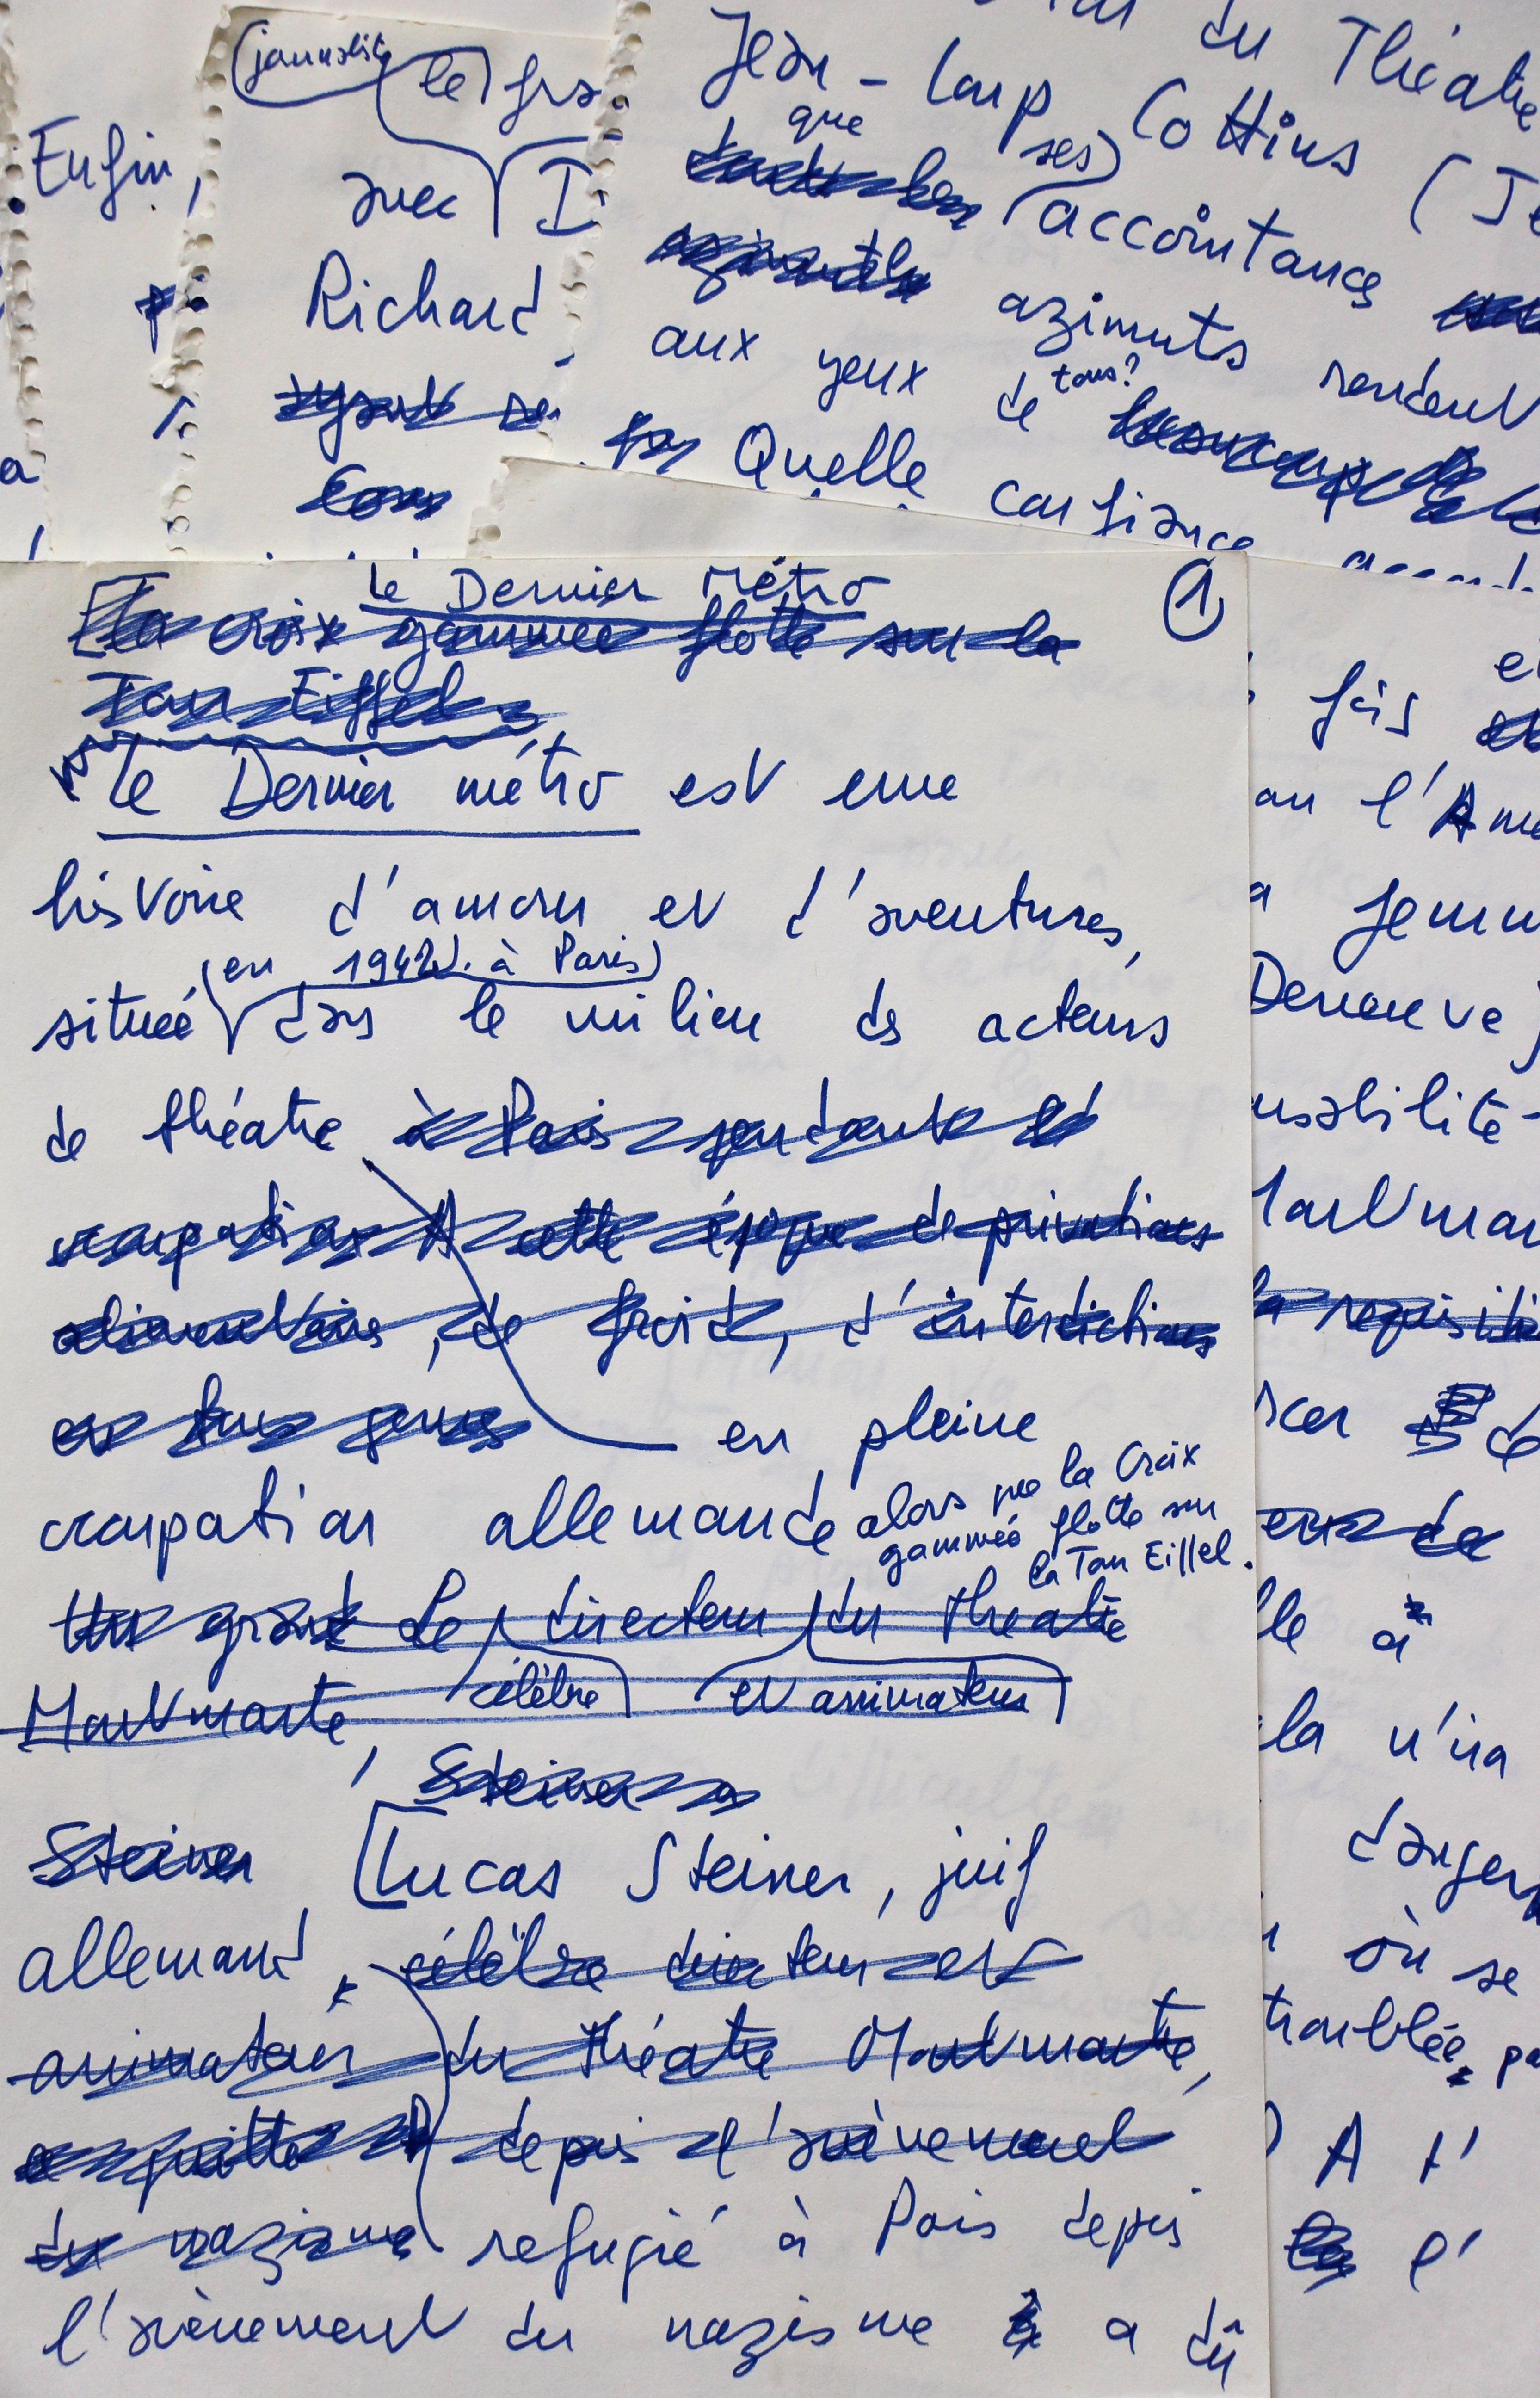 Enfin,
(journaliste
(le) gra
avec I
Richard
du Théatre
Jean-Loup Cottins (Je
que
ses)
accointances
azimuts rendent
aux yeux de tous?
Quelle confiance
Le Dernier Métro
①
La croix gammée flotte sur la
Tour Eiffel
Le Dernier métro est une
histoire d'amour et d'aventures,
(en 1942). à Paris)
située dans le milieu des acteurs
de théatre à Paris pendant l'
occupation A cette époque de privations
alimentaires, de froid, d'interdictions
en tous genres
en pleine
occupation allemande alors que la Croix
gammée flotte sur
la Tour Eiffel.
Un grand Le directeur du théatre
Montmartre, célèbre et animateur
Steiner
Steiner [Lucas Steiner, juif
allemand, célèbre directeur et
animateur du théatre Montmartre,
a quitté depuis l'avènement
du nazisme refugié à Paris depuis
l'avènement du nazisme a dû
fois
ou l'Ame
a femm
Deneuve)
usabilité
Montmar
la requisitio
de
lle à
la n'ira
danger
où se
troublée, pa
A l'
l'